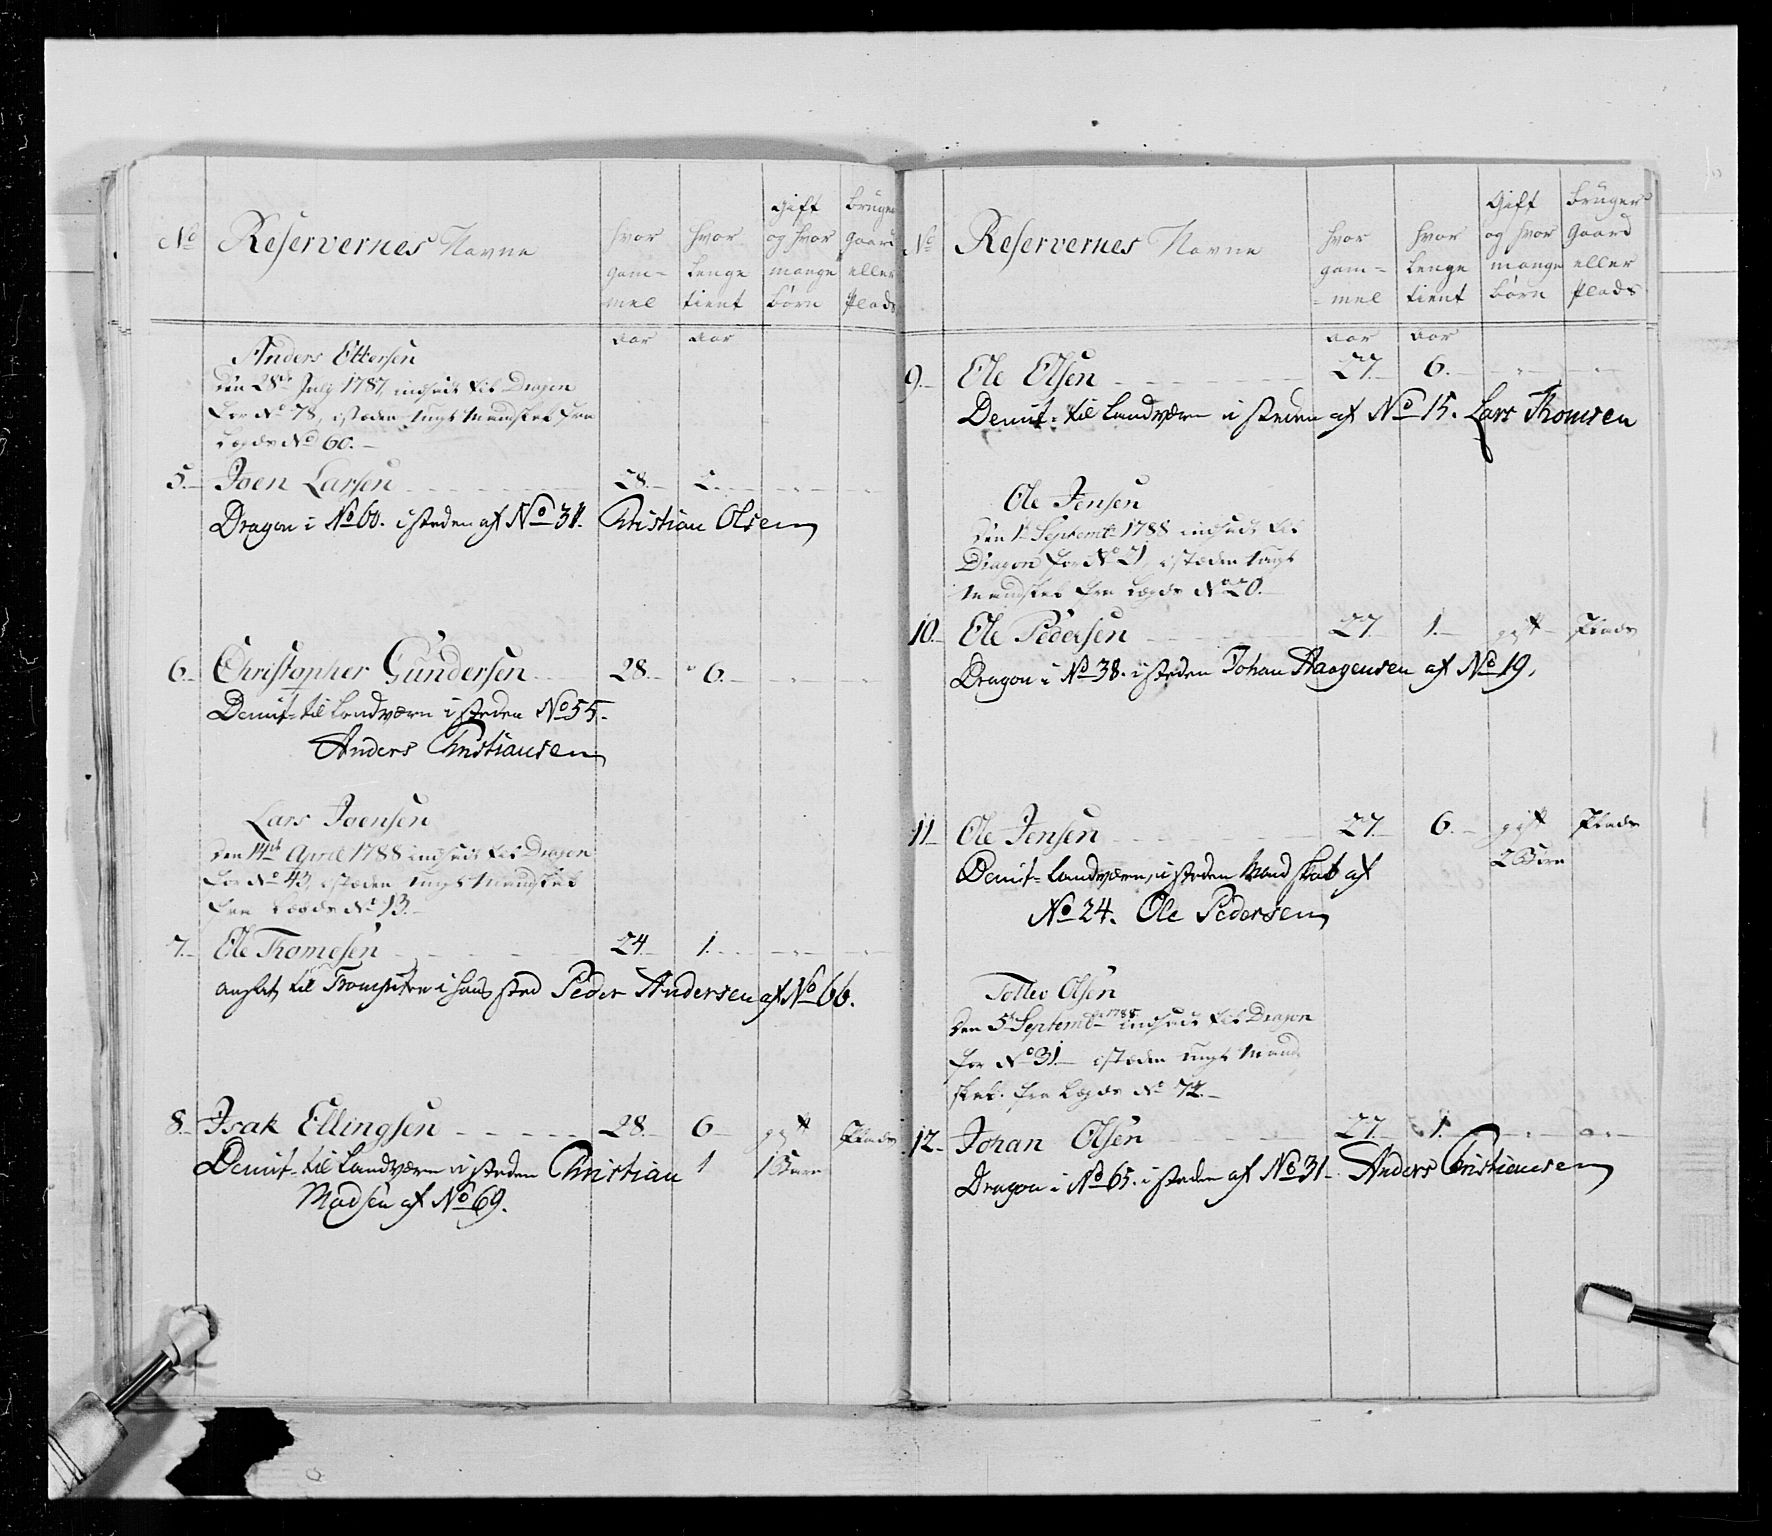 No Reservernes Navne
hvor gam= mel
hvor lenge tient
Gift og hvor mange børn
bruger gaard eller Plads
aar aar
Anders Ettersen
den 28de July 1787, indsadt til Dragon
for No 78, isteden ungt Mandskab fra
Legds No 60.
5. Joen Larsen 28.
Dragon i No 60. isteden af No 31. Christian Olsen
6. Christopher Gundersen 28. 6.
Demit: til Landværn i steden No 55.
Anders Christiansen
Lars Joensen
den 14de April 1788 indsadt til Dragon
for No 43, isteden ungt Mandskab
fra Legds No 13.
7. Ole Thomesen 24. 1.
ansat til Trompetter i hans sted Peder Andersen af No 66.
8. Isak Ellingsen 28. 6 gift Plads
Demit: til Landværn i steden Christian 1 1 Barn
Madsen af No 69.
No Reservernes Navne
hvor gam= =mel
hvor lenge tient
Gift og hvor mange børn
bruger gaard eller Plads
aar aar
9. Ole Olsen 27. 6.
Demit: til Landværn i steden af No 15. Lars Thomsen
Ole Jensen
den 1te Septemb: 1788 indsadt til
Dragon for No 21, isteden ungt
Mandskab fra Legds No 20.
10. Ole Pedersen 27. 1. gift Plads
Dragon i No 38. isteden Johan Haagensen af No 19.
11 Ole Jensen 27. 6. gift Plads
2 Børn
Demit: Landværn, i steden Mandskab af
No 24. Ole Pedersen
Tollev Olsen
den 5te Septemb: 1788 indsadt til Dragon
for No 31 isteden ungt Mand
skab. fra Legds No 72.
12. Johan Olsen 27. 1.
Dragon i No 65. isteden af No 31. Anders Christiansen